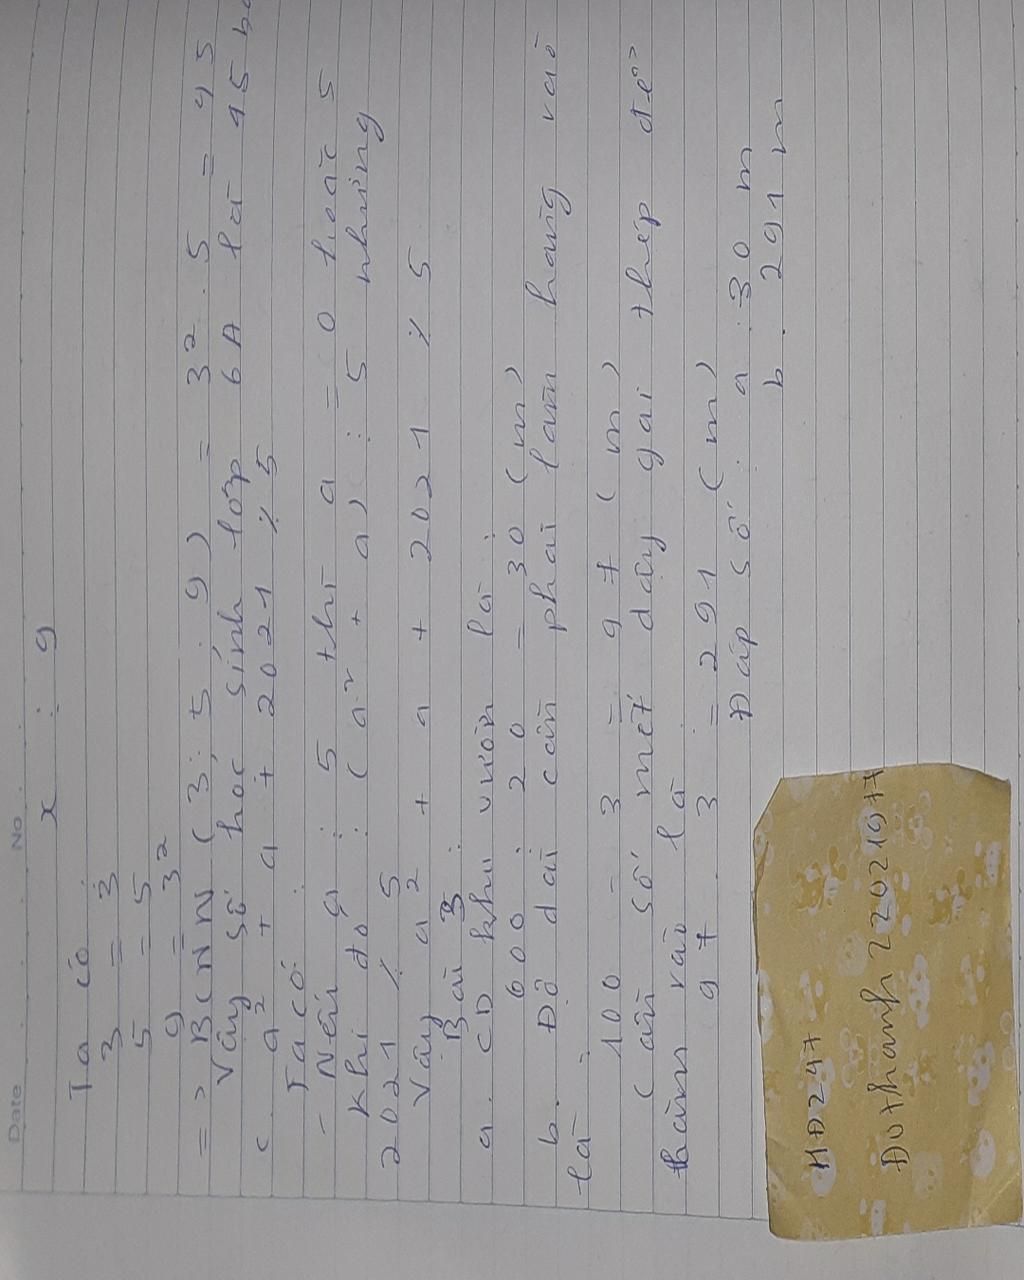 Date No.
x : 9
Ta có :
3 = 3
5 = 5
9 = 3²
=> BCNN ( 3 ; 5 ; 9 ) = 3² . 5 = 45
Vậy số học sinh lớp 6A là 45
c. a² + a + 2021 ⋮̸ 5
Ta có :
- Nếu a ⋮ 5 thì a = 0 hoặc 5
Khi đó : ( a² + a ) ⋮ 5 nhưng
2021 ⋮̸ 5
Vậy a² + a + 2021 ⋮̸ 5
Bài 3 :
a. CD khu vườn là :
600 : 20 = 30 (m)
b. Độ dài cần phải làm hàng rào
là :
100 - 3 = 97 (m)
Cần số mét dây gai thép để
làm rào là
97 . 3 = 291 (m)
Đáp số : a : 30 m
b . 291 m
HD247
Dothanh22021977